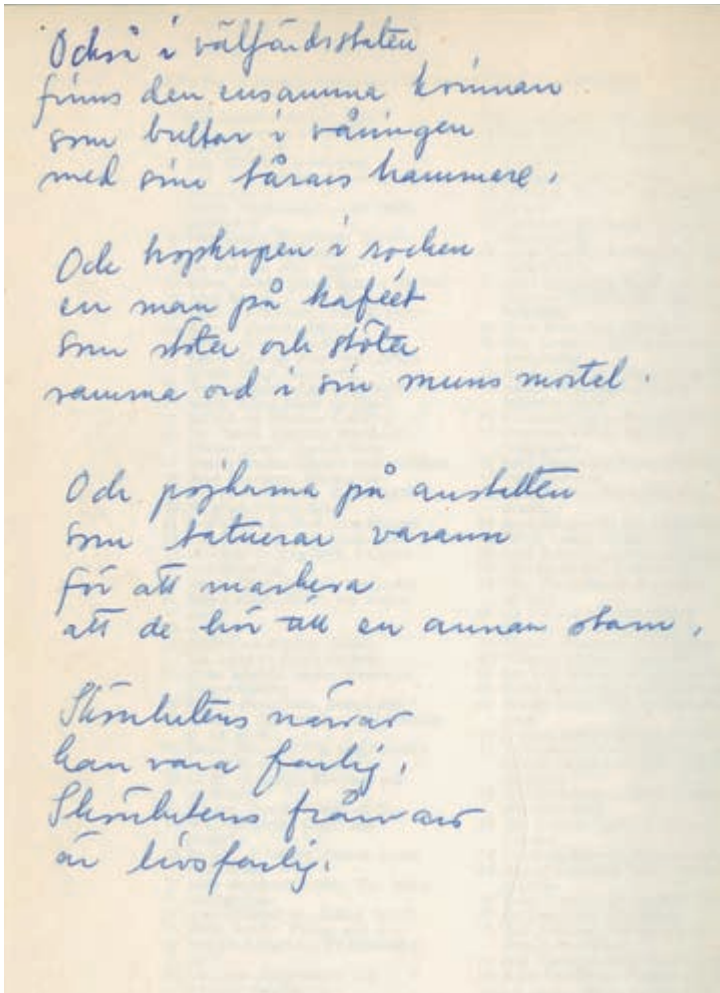 Också i välfärdsstaten
finns den ensamma kvinnan
som bultar i våningen
med sina tårars hammare.
Och hopkrupen i rocken
en man på kaféet
som stöter och stöter
samma ord i sin muns mortel.
Och pojkarna på anstalten
som tatuerar varann
för att markera
att de hör till en annan stam.
Skönhetens närvaro
kan vara farlig.
Skönhetens frånvaro
är livsfarlig.